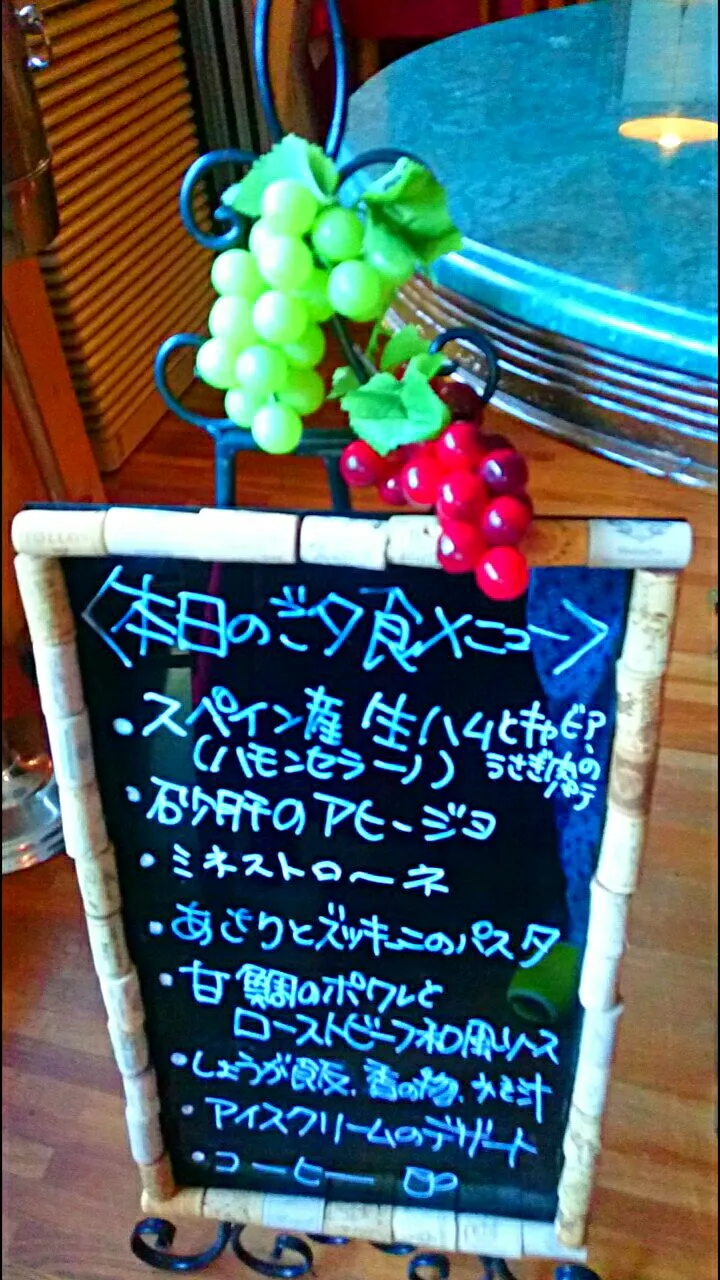 〈本日のご夕食メニュー〉
・スペイン産 生ハムとキャビア、
(ハモンセラーノ) うさぎ肉の
パテ
・砂肝のアヒージョ
・ミネストローネ
・あさりとズッキーニのパスタ
・甘鯛のポワレと
ローストビーフ和風ソース
・しょうが飯、香の物、みそ汁
・アイスクリームのデザート
・コーヒー